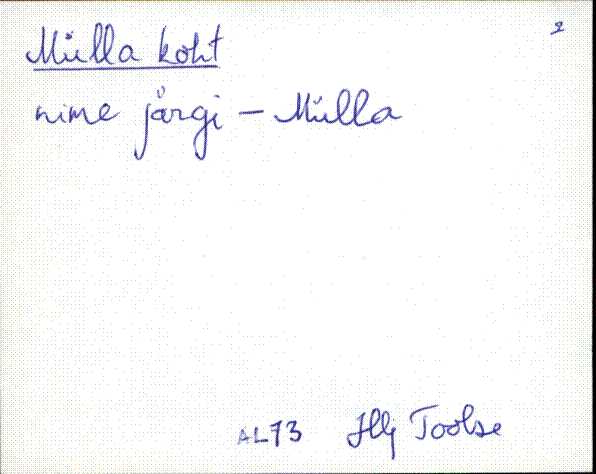 Mülla koht
2
nime järgi – Mülla
AL73 Illj Toolse